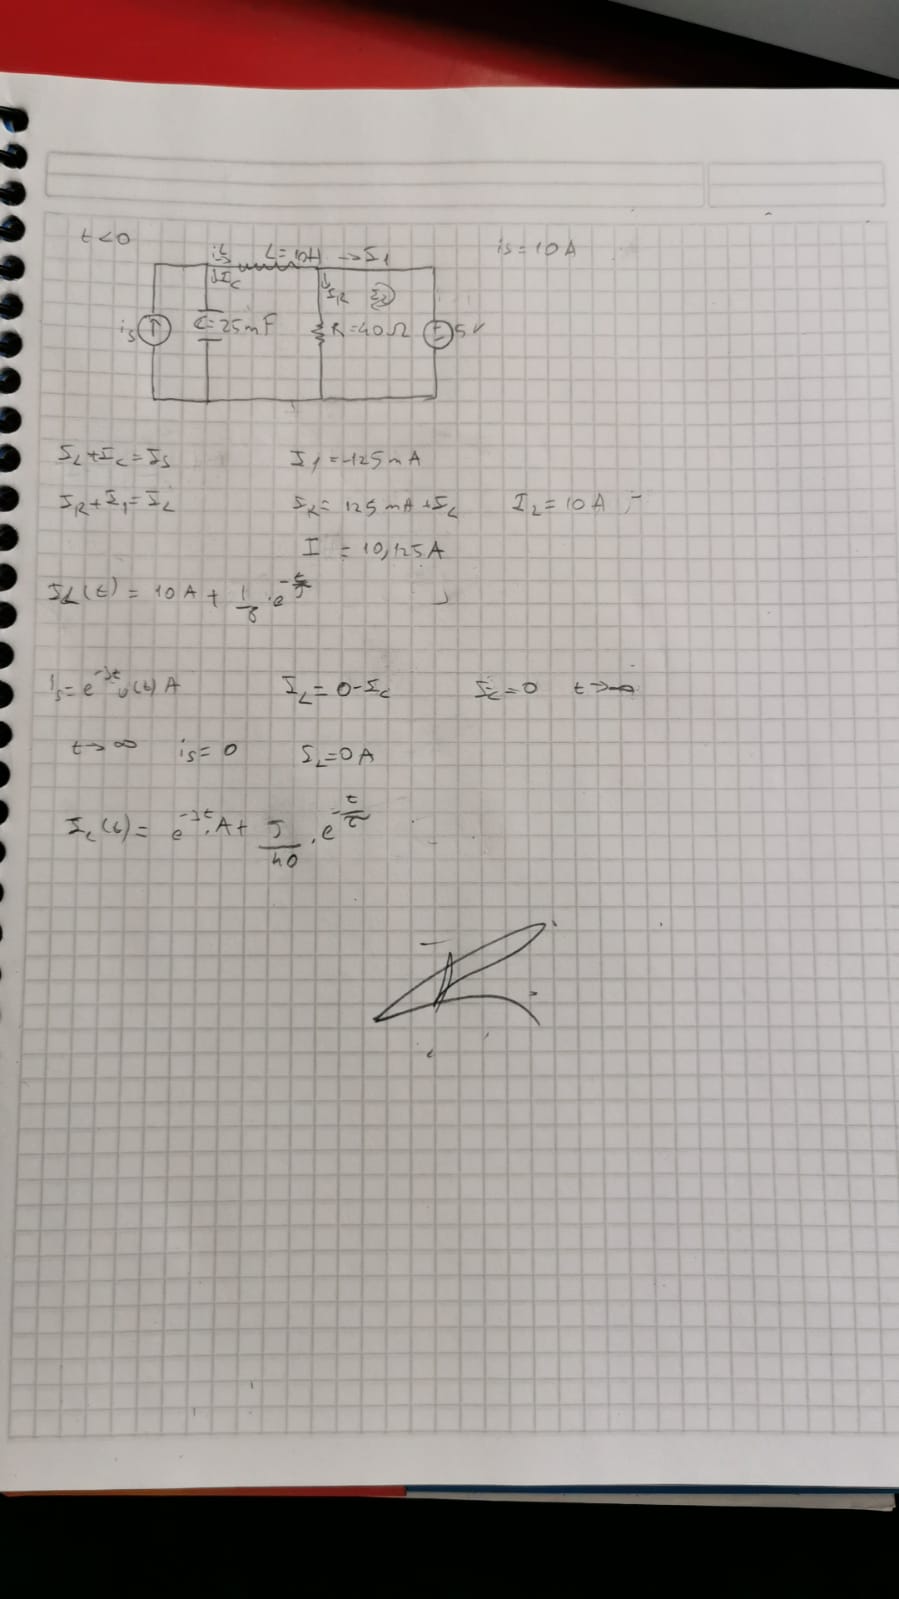 t<0
L=10H → I1
is=10A
IC
IR
is
C=25mF
R=40Ω
5V
IL+IC=IS I1=-125mA
IR+I1=IL IR=125mA+IL IL=10A
I =10,125A
IL(t)=10A+1/8·e^-t/τ
is=e^-3t·u(t)A IL=0-IC IC=0 t→∞
t→∞ is=0 IL=0A
IL(t)=e^-3t·A+5/40·e^-t/τ